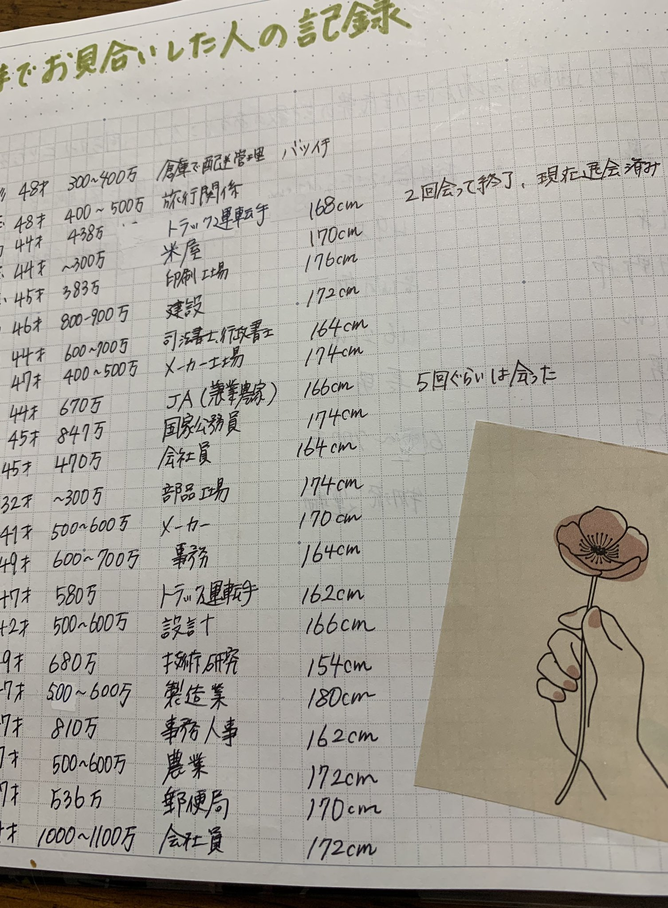 でお見合いした人の記録
48才 300~400万 倉庫で配送管理 バツイチ
48才 400~500万 旅行関係 2回会って終了、現在退会済み
44才 438万 トラック運転手 168cm
44才 ~300万 米屋 170cm
45才 383万 印刷工場 176cm
46才 800-900万 建設 172cm
44才 600~700万 司法書士,行政書士 164cm
47才 400~500万 メーカー工場 174cm
44才 670万 JA(兼業農家) 166cm 5回ぐらいは会った
45才 847万 国家公務員 174cm
45才 470万 会社員 164cm
32才 ~300万 部品工場 174cm
41才 500~600万 メーカー 170cm
49才 600~700万 事務 164cm
7才 580万 トラック運転手 162cm
2才 500~600万 設計 166cm
9才 680万 技術研究 154cm
7才 500~600万 製造業 180cm
7才 810万 事務人事 162cm
才 500~600万 農業 172cm
7才 536万 郵便局 170cm
才 1000~1100万 会社員 172cm